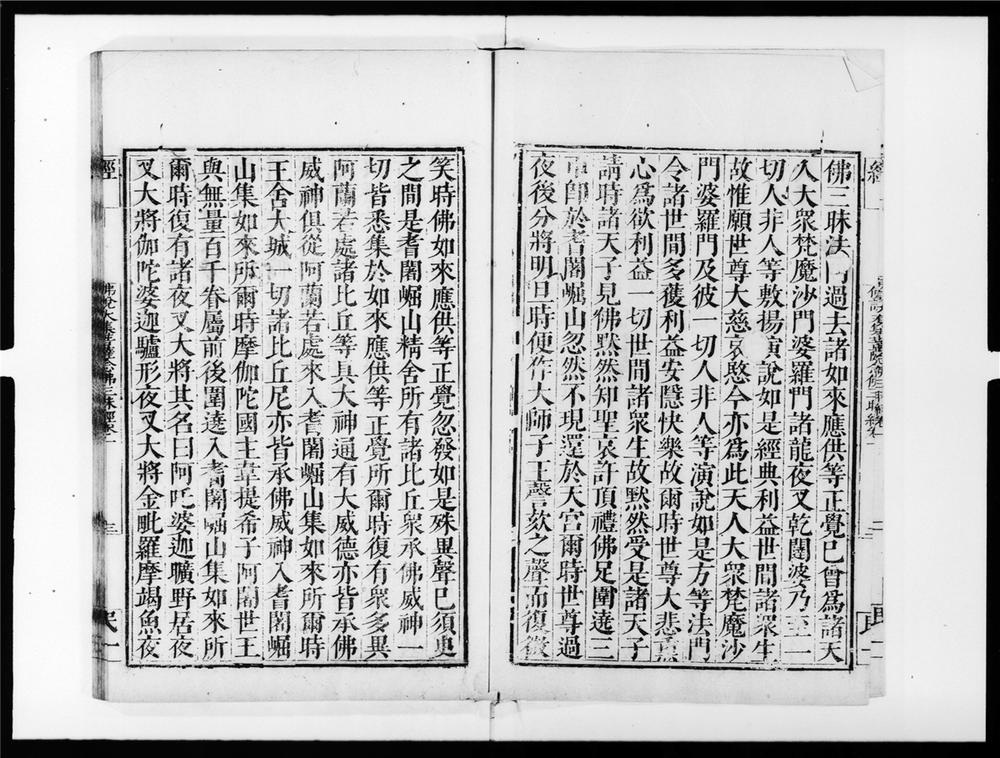 佛三昧法門過去諸如來應供等正覺已曾為諸天
人大眾梵魔沙門婆羅門諸龍夜叉乾闥婆乃至一
切人非人等敷揚演說如是經典利益世間諸眾生
故惟願世尊大慈哀愍今亦為此天人大眾梵魔沙
門婆羅門及彼一切人非人等演說如是方等法門
令諸世間多獲利益安隱快樂故爾時世尊大悲熏
心為欲利益一切世間諸眾生故默然受是諸天子
請時諸天子見佛默然知聖哀許頂禮佛足圍遶三
帀即於耆闍崛山忽然不現還於天宮爾時世尊過
夜後分將明旦時便作大師子王謦欬之聲而復微
笑時佛如來應供等正覺忽發如是殊異聲已須臾
之間是耆闍崛山精舍所有諸比丘眾承佛威神一
切皆悉集於如來應供等正覺所爾時復有眾多異
阿蘭若處諸比丘等具大神通有大威德亦皆承佛
威神俱從阿蘭若處來入耆闍崛山集如來所爾時
王舍大城一切諸比丘尼亦皆承佛威神入耆闍崛
山集如來所爾時摩伽陀國主韋提希子阿闍世王
與無量百千眷屬前後圍遶入耆闍崛山集如來所
爾時復有諸夜叉大將其名曰阿吒婆迦曠野居夜
叉大將伽陀婆迦驢形夜叉大將金毗羅摩竭魚夜
經
佛說大集菩薩念佛三昧經卷一
三
民一